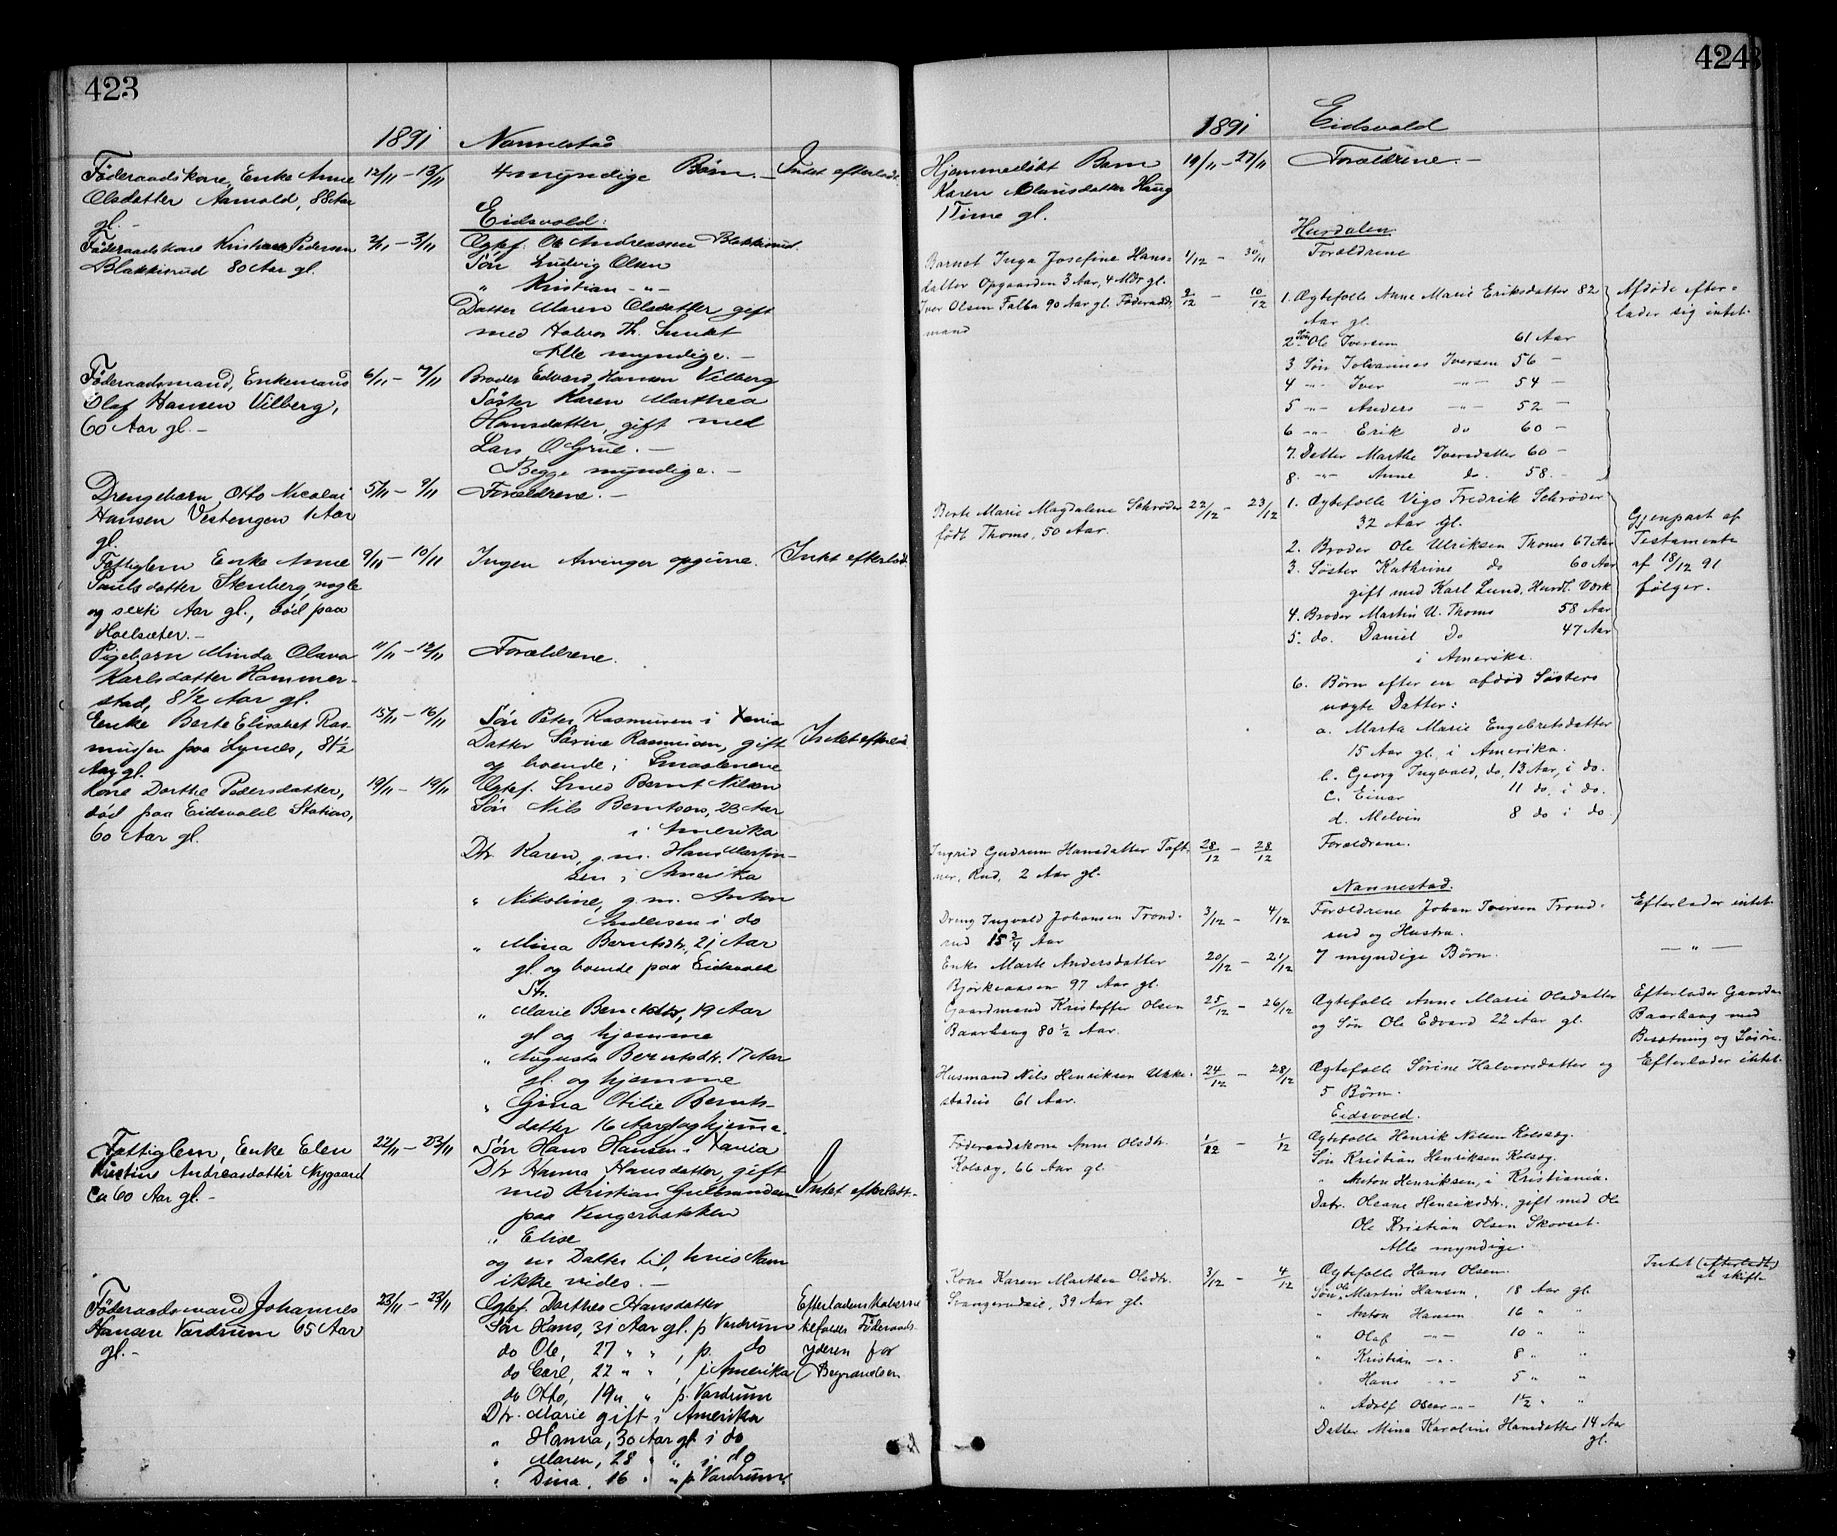 423
1891 Nannestad
Föderaadskone, Enke Anne 12/11 — 13/11 4 myndige Börn. — Intet efterladt.
Olsdatter Aamold, 88 Aar
gl. —
Eidsvold:
Föderaadskone Kristiane Pedersen 2/11 — 3/11 Ægtef. Ole Andreassen Blakkisrud
Blakkisrud 80 Aar gl. Sön Ludvig Olsen
" Kristian - " -
Datter Maren Olsdatter gift
med Halvor Th.
Alle myndige. —
Föderaadsmand, Enkemand 6/11 — 7/11 Broder Edvard Hansen Vilberg
Olaf Hansen Vilberg, Söster Karen Marthea
60 Aar gl. — Hansdatter, gift med
Lars O. Grue. —
Begge myndige. —
Drengebarn Otto Nicolai 5/11 — 9/11 Forældrene. —
Hansen Vestengen 1 Aar
gl.
Fattiglem Enke Anne 9/11 — 10/11 Ingen Arvinger opgivne. Intet efterladt
Paulsdatter Stenberg, nogle
og sexti Aar gl., död paa
Hoelsæter. —
Pigebarn Minda Olava 11/11 — 12/11 Forældrene.
Karlsdatter Hammer-
stad, 8 1/2 Aar gl.
Enke Berte Elisabet Ras- 15/11 — 16/11 Sön Peter Rasmusen i Xania
musen paa Lynes, 81 1/2 Datter Sörine Rasmusen, gift Intet efterladt
Aar gl. og boende i Smaalenene
Kone Dorthe Pedersdatter, 19/11 — 19/11 Ægtef. Smed Bernt Nilsen
död paa Eidsvold Station, Sön Nils Berntsen, 23 Aar
60 Aar gl. i Amerika
Dtr. Karen, g.m. Hans Martin-
sen i Amerika
" Nikoline, g.m. Anton
Andersen i do
" Mina Berntsdtr, 21 Aar
gl. og boende paa Eidsvold
St.
" Marie Berntsdtr, 19 Aar
gl. og hjemme
" Augusta Berntsdtr. 17 Aar
gl. og hjemme
" Gina Otilie Bernts-
datter 16 Aar og hjemme.
Fattiglem, Enke Elen 22/11 — 23/11 Sön Hans Hansen i Xania
Kristine Andreasdatter Nygaard Dtr Hanna Hansdatter, gift
ca 60 Aar gl. — med Kristian Gulbrandsen Intet efterladt. —
paa Vengerbakken
" Elise
og en Datter til, hvis Navn
ikke vides. —
Föderaadsmand Johannes 23/11 — 23/11 Ægtef. Dorthea Hansdatter Efterladenskaberne
Hansen Vardrum 65 Aar Sön Hans, 31 Aar gl. p Vardrum tilfalder Föderaads-
gl. — do Ole, 27 " " , p. do yderen for
do Carl, 22 " " , i Amerika Begravelsen
do Otto, 19 " " p. Vardrum
Dtr. Marie gift i Amerika
" Hanna, 30 Aar gl. i do
" Maren, 28 " " i do
" Dina, 16 " " p Vardrum
424
1891 Eidsvold
Hjemmedöbt Barn 19/11 — 27/11 Forældrene. —
Karen Clausdatter Haug
1 Time gl.
Hurdalen
Barnet Inga Josefine Hans- 1/12 — 30/11 Forældrene
datter Opgaarden 3 Aar, 4 Mdr gl.
Iver Olsen Falba 90 Aar gl. Föderaads- 9/12 — 10/12 1. Ægtefolle Anne Marie Eriksdatter 82 Afdøde efter-
mand Aar gl. lader sig intet.
2 Sön Ole Iversen 61 Aar
3 Søn Johannes Iversen 56 —
4 - " - Iver - " - 54 —
5 - " - Anders - " - 52 —
6 - " - Erik do 60 —
7. Datter Marthe Iversdatter 60 —
8. - " - Anne do 58. —
Berte Marie Magdalene Schrøder 22/12 — 23/12 1. Ægtefolle Vigo Fredrik Schrøder
født Thoms, 50 Aar. 32 Aar gl. Gjenpart af
2. Broder Ole Ulriksen Thoms 67 Aar Testamente
3. Søster Kathrine do 60 Aar af 18/12 91
gift med Karl Lund, Hurdl. Værk følger.
4. Broder Martin U. Thoms 58 Aar
5. do. Daniel Do 47 Aar
i Amerika.
6. Børn efter en afdød Søsters
uægte Datter:
a. Marta Marie Engebretsdatter
15 Aar gl. i Amerika.
b. Georg Ingvald, do, 13 Aar, i do.
c. Einar 11 do, i do.
d. Melvin 8 do i do.
Ingrid Gudrun Hansdatter Toft- 28/12 — 28/12 Forældrene.
ner, Rud, 2 Aar gl.
Nannestad.
Dreng Ingvald Johansen Trond- 3/12 — 4/12 Forældrene Johan Iversen Trond- Efterlader intet.
rud 15 3/4 Aar rud og Hustru.
Enke Marte Andersdatter 20/12 — 21/12 7 myndige Børn. — " —
Bjørkeaasen 97 Aar gl.
Gaardmand Kristoffer Olsen 25/12 — 26/12 Ægtefolle Anne Marie Olsdatter Efterlader Gaarden
Baarhaug 80 1/2 Aar. og Søn Ole Edvard 22 Aar gl. Baarhaug med
Besætning og Løsøre.
Husmand Nils Henriksen Ukke- 24/12 — 28/12 Ægtefolle Sørine Halvorsdatter og Efterlader intet.
stadeie 61 Aar. 5 Børn.
Eidsvold.
Föderaadskone Anne Olsdtr. 1/12 — 1/12 Ægtefolle Henrik Nilsen Kolsæg.
Kolsæg, 66 Aar gl. Søn Kristian Henriksen Kolsæg.
" Anton Henriksen, i Kristiania.
Datr. Oleane Henriksdtr., gift med Ole
Ole Kristian Olsen Skovset.
Alle myndige.
Kone Karen Marthea Olsdtr. 3/12 — 4/12 Ægtefolle Hans Olsen. Intet (efterladt) at skifte
39 Aar gl. Søn Ole Martin Hansen, 18 Aar gl.
" Anton Hansen 16 " "
" Olaf — " — 10 " "
" Kristian — " — 8 " "
" Hans - " - 5 " "
" Adolf Oscar - " - 1 1/2 " "
Datter Mina Karoline Hansdatter 14 Aar
gl.